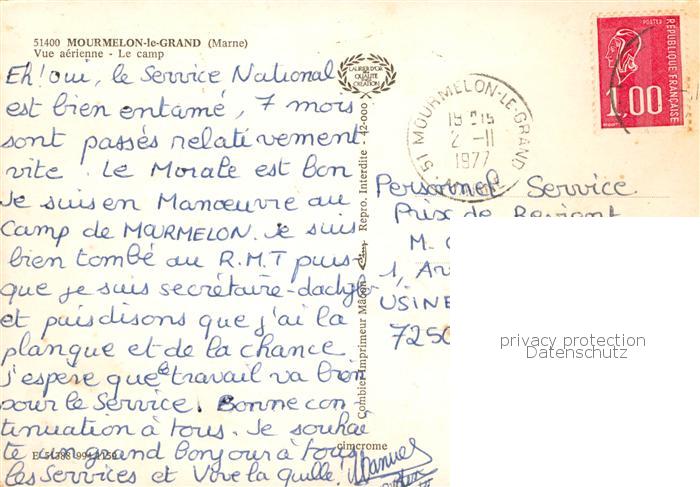 51400 MOURMELON-le-GRAND (Marne)
Vue aérienne - Le camp
Eh! oui, le Service National
est bien entamé, 7 mois
sont passés relativement
vite. Le Morale est bon
Je suis en Manœuvre au
Camp de MOURMELON. Je suis
bien tombé au R.M.T puis-
que je suis secrétaire-dactylo
et puis disons que j'ai la
planque et de la chance.
J'espère que le travail va bien
pour le Service. Bonne con
tinuation à tous. Je souhai
te un grand bonjour à tous
les Services et Vive la quille!
LAURIER D'OR
DE LA
QUALITÉ
CRÉATION
Combier Imprimeur Mâcon Cim Repro. Interdite - 42-000
cimcrome
51 MOURMELON-LE-GRAND
2 -11
1977
MARNE
POSTES
RÉPUBLIQUE FRANÇAISE
1.00
Personnel Service
Prix de Revient
M.
1, Av
USINE
7250
privacy protection
Datenschutz